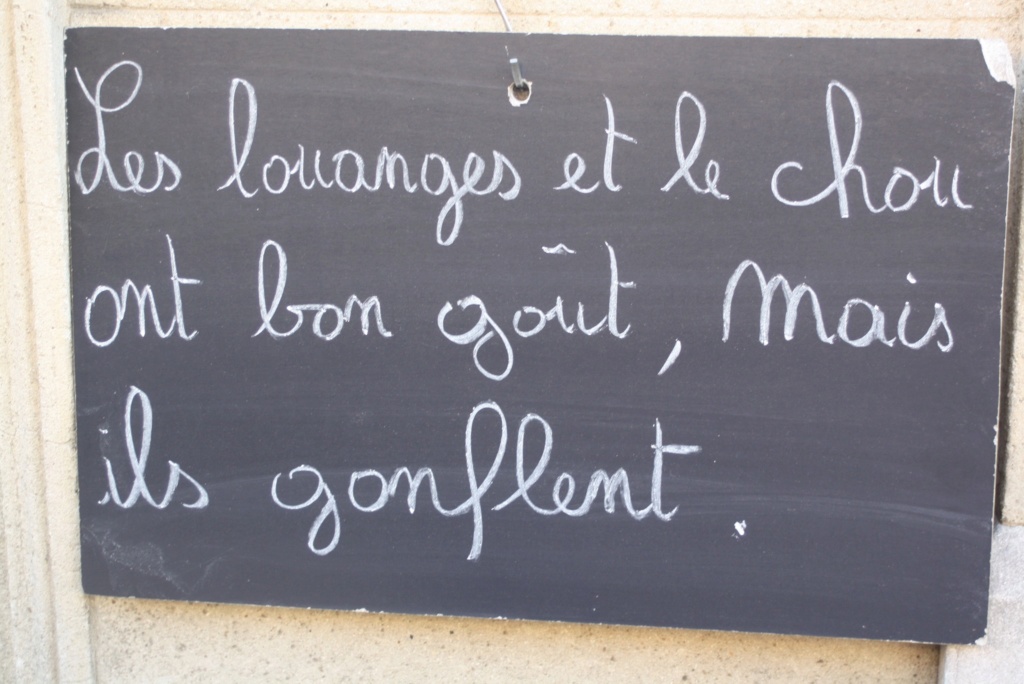 Les louanges et le chou
ont bon goût, mais
ils gonflent.